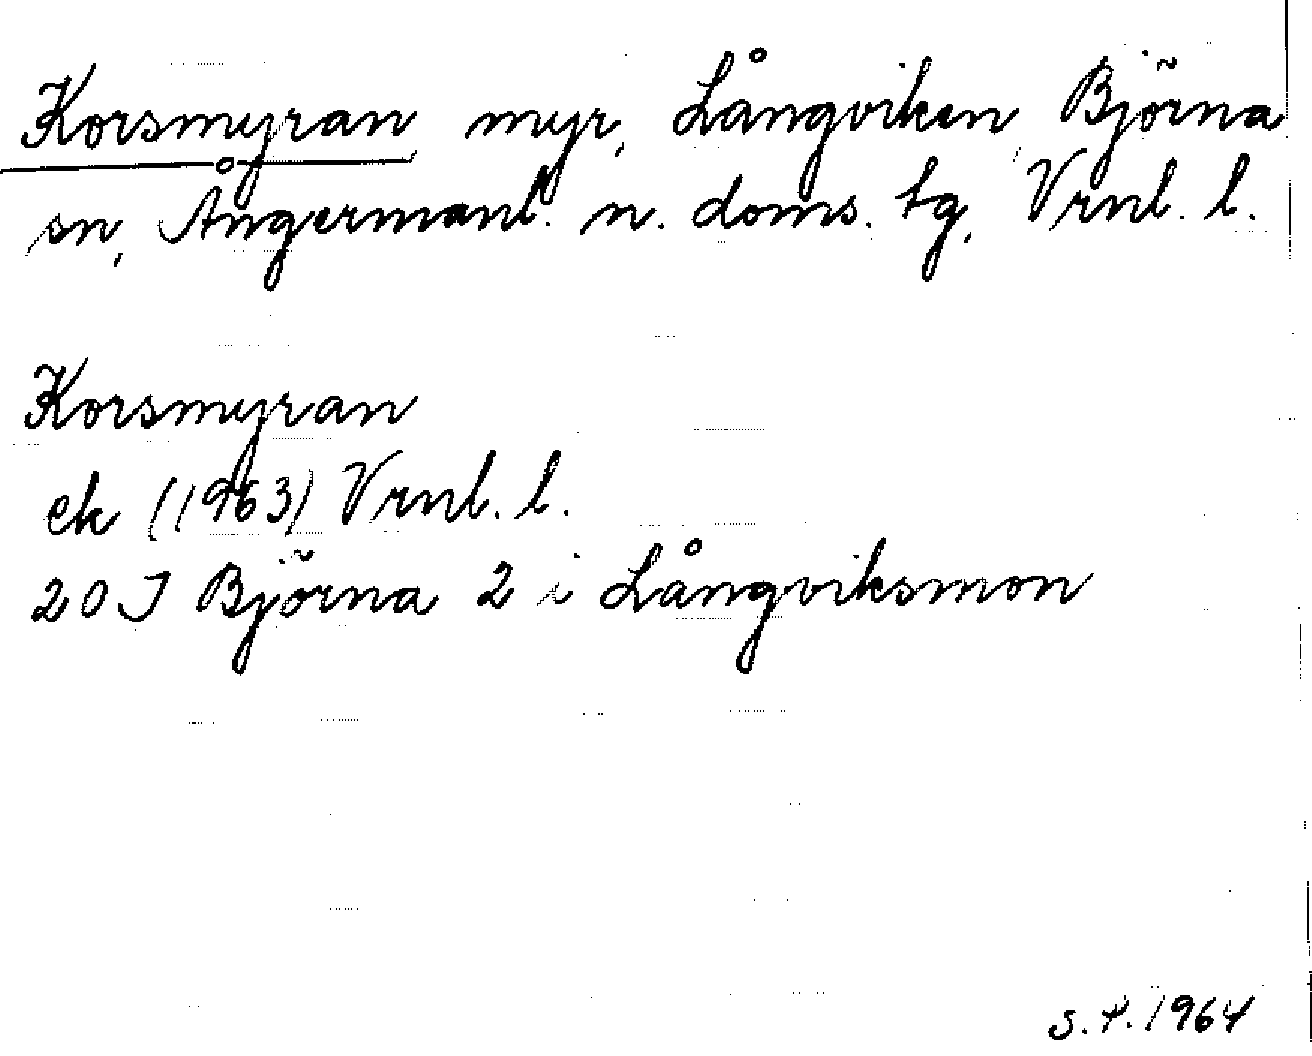 Korsmyran myr, Långviken, Björna
sn, Ångermanl. n. doms. tg, Vrnl. l.
Korsmyran
ek (1963) Vrnl. l.
20 J Björna 2 i Långviksmon
s. 4. 1964